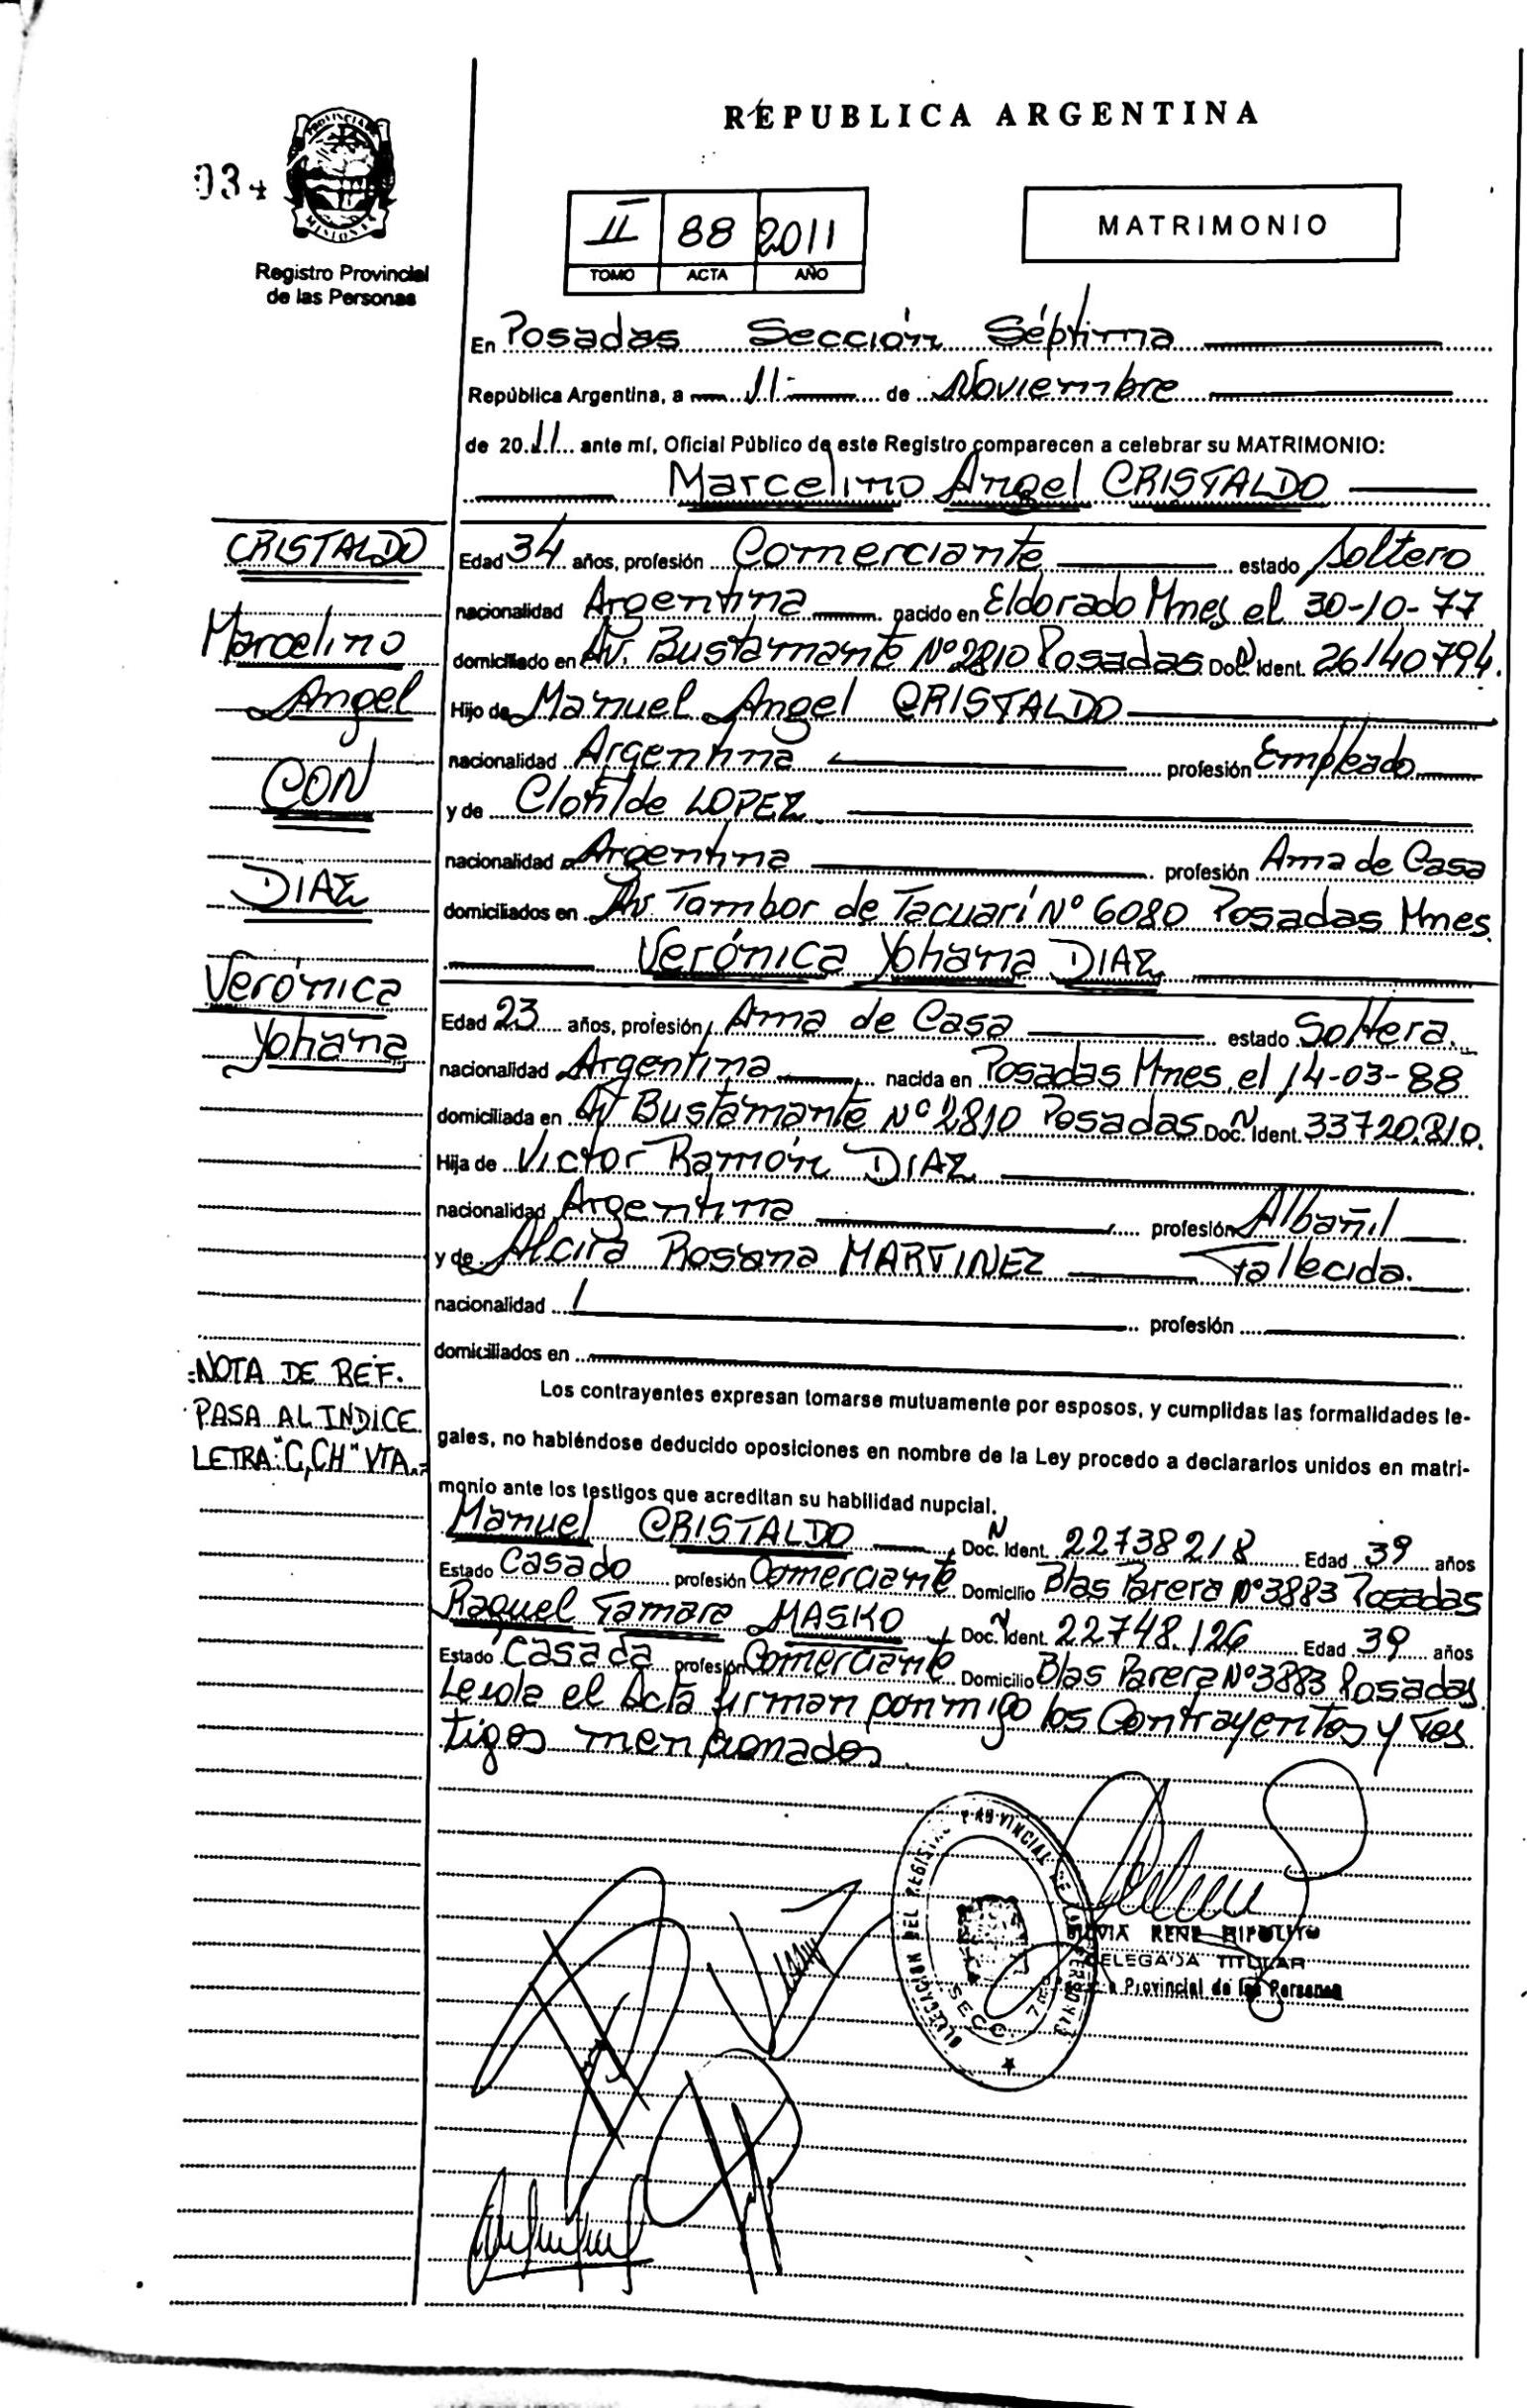 REPUBLICA ARGENTINA
034
PROVINCIA
MISIONES
Registro Provincial
de las Personas
II 88 2011
TOMO ACTA AÑO
MATRIMONIO
En Posadas Sección Séptima
República Argentina, a 11 de Noviembre
de 2011 ante mí, Oficial Público de este Registro comparecen a celebrar su MATRIMONIO:
Marcelino Angel CRISTALDO
CRISTALDO
Marcelino
Angel
CON
DIAZ
Verónica
Yohana
Edad 34 años, profesión Comerciante estado Soltero
nacionalidad Argentina nacido en Eldorado Mnes el 30-10-77
domiciliado en Av. Bustamante Nº 2810 Posadas Doc. N Ident. 26140794.
Hijo de Manuel Angel CRISTALDO
nacionalidad Argentina profesión Empleado
y de Clotilde LOPEZ
nacionalidad Argentina profesión Ama de Casa
domiciliados en Av. Tambor de Tacuarí Nº 6080 Posadas Mnes.
Verónica Yohana DIAZ
Edad 23 años, profesión Ama de Casa estado Soltera.
nacionalidad Argentina nacida en Posadas Mnes, el 14-03-88
domiciliada en Av Bustamante Nº 2810 Posadas Doc. N Ident. 33720.810.
Hija de Victor Ramón DIAZ
nacionalidad Argentina profesión Albañil
y de Alcira Rosana MARTINEZ Fallecida.
nacionalidad profesión
domiciliados en
NOTA DE REF.
PASA AL INDICE
LETRA "C,CH" VTA.-
Los contrayentes expresan tomarse mutuamente por esposos, y cumplidas las formalidades le-
gales, no habiéndose deducido oposiciones en nombre de la Ley procedo a declararlos unidos en matri-
monio ante los testigos que acreditan su habilidad nupcial.
Manuel CRISTALDO Doc. N Ident. 22738218 Edad 39 años
Estado Casado profesión Comerciante Domicilio Blas Parera Nº 3883 Posadas
Raquel Tamara MASKO Doc. N Ident. 22748.126 Edad 39 años
Estado Casada profesión Comerciante Domicilio Blas Parera Nº 3883 Posadas
Leida el Acta firman conmigo los Contrayentes y Tes
tigos mencionados.
DELEGACION DEL REGISTRO PROVINCIAL DE LAS PERSONAS
SECC. 7ma
SILVIA RENE RIPOLITO
DELEGADA TITULAR
Provincial de las Personas